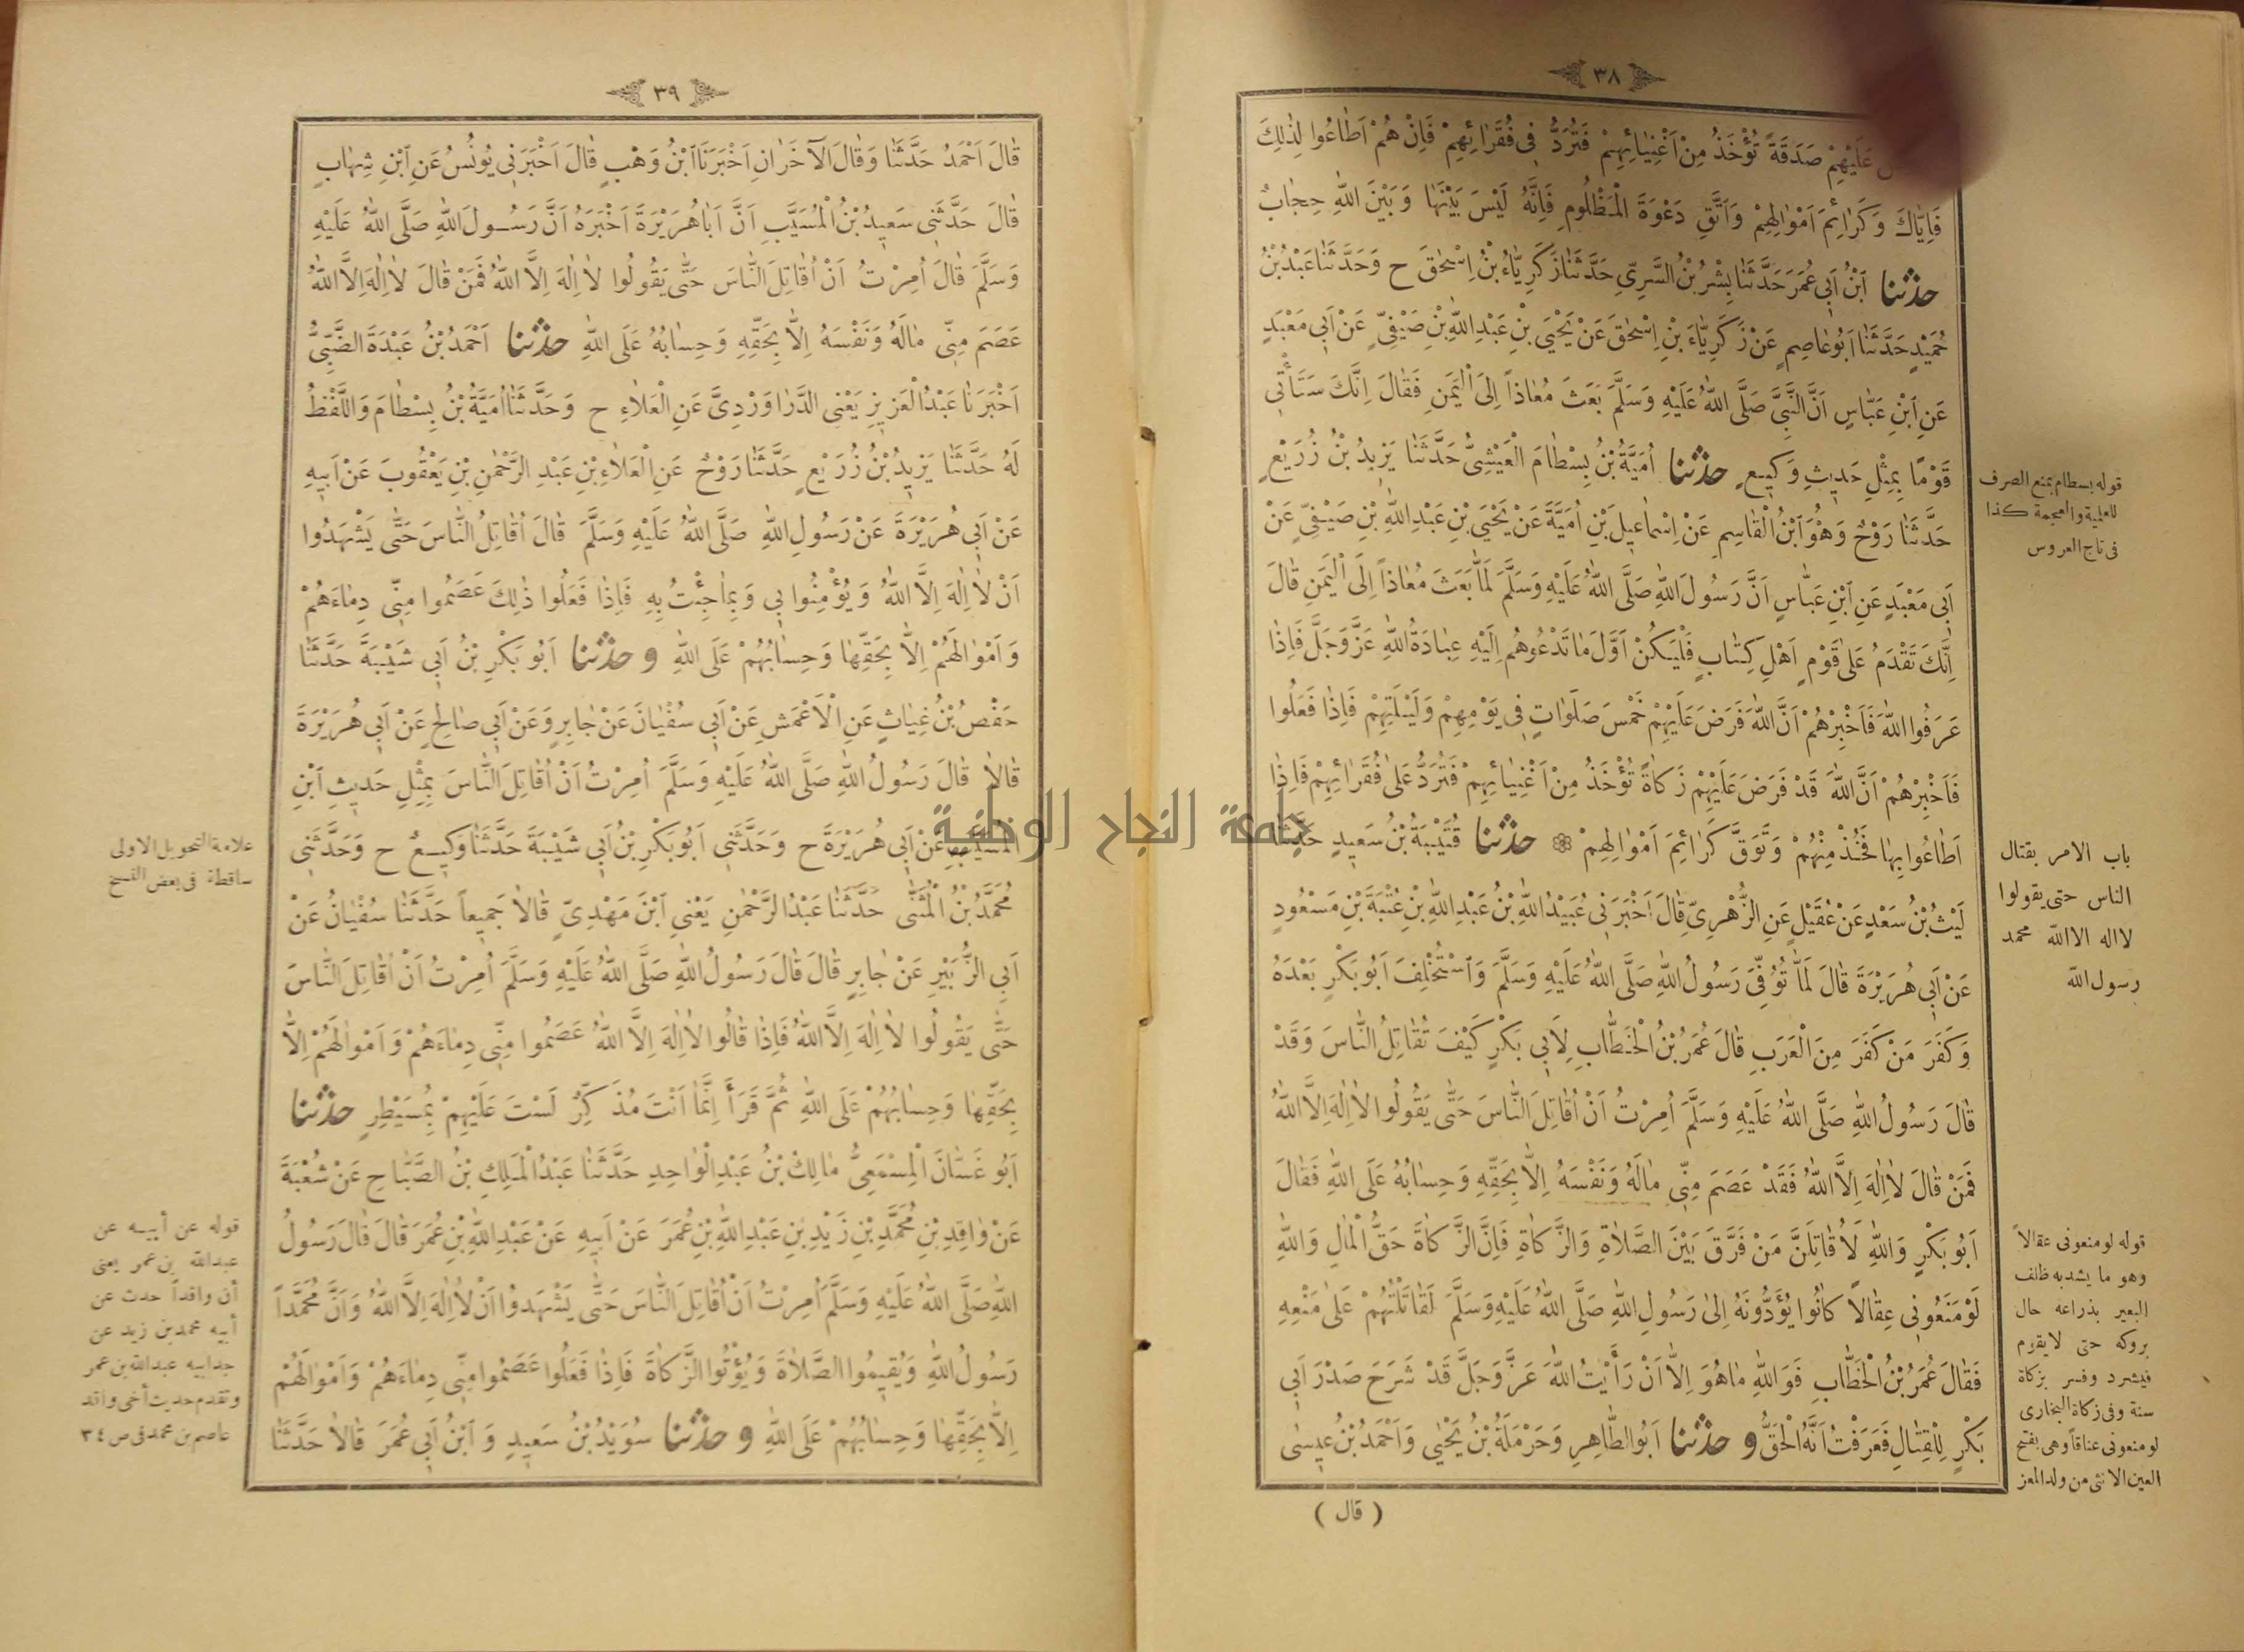 ٣٨
عَلَيْهِمْ صَدَقَةً تُؤْخَذُ مِنْ اَغْنِيَائِهِمْ فَتُرَدُّ فِى فُقَرَائِهِمْ فَاِنْ هُمْ اَطَاعُوا لِذٰلِكَ
فَاِيَّاكَ وَكَرَائِمَ اَمْوَالِهِمْ وَاتَّقِ دَعْوَةَ الْمَظْلُومِ فَاِنَّهُ لَيْسَ بَيْنَهَا وَبَيْنَ اللّٰهِ حِجَابٌ
حدثنا ابْنُ اَبِى عُمَرَ حَدَّثَنَا بِشْرُ بْنُ السَّرِىِّ حَدَّثَنَا زَكَرِيَّاءُ بْنُ اِسْحٰقَ ح وَحَدَّثَنَا عَبْدُ بْنُ
حُمَيْدٍ حَدَّثَنَا اَبُو عَاصِمٍ عَنْ زَكَرِيَّاءَ بْنِ اِسْحٰقَ عَنْ يَحْيَى بْنِ عَبْدِ اللّٰهِ بْنِ صَيْفِىٍّ عَنْ اَبِى مَعْبَدٍ
عَنِ ابْنِ عَبَّاسٍ اَنَّ النَّبِىَّ صَلَّى اللّٰهُ عَلَيْهِ وَسَلَّمَ بَعَثَ مُعَاذاً اِلَى الْيَمَنِ فَقَالَ اِنَّكَ سَتَأْتِى
قَوْمًا بِمِثْلِ حَدِيثِ وَكِيعٍ حدثنا اُمَيَّةُ بْنُ بِسْطَامَ الْعَيْشِىُّ حَدَّثَنَا يَزِيدُ بْنُ زُرَيْعٍ
حَدَّثَنَا رَوْحٌ وَهُوَ ابْنُ الْقَاسِمِ عَنْ اِسْمَاعِيلَ بْنِ اُمَيَّةَ عَنْ يَحْيَى بْنِ عَبْدِ اللّٰهِ بْنِ صَيْفِىٍّ عَنْ
اَبِى مَعْبَدٍ عَنِ ابْنِ عَبَّاسٍ اَنَّ رَسُولَ اللّٰهِ صَلَّى اللّٰهُ عَلَيْهِ وَسَلَّمَ لَمَّا بَعَثَ مُعَاذاً اِلَى الْيَمَنِ قَالَ
اِنَّكَ تَقْدَمُ عَلَى قَوْمٍ اَهْلِ كِتَابٍ فَلْيَكُنْ اَوَّلَ مَا تَدْعُوهُمْ اِلَيْهِ عِبَادَةُ اللّٰهِ عَزَّ وَجَلَّ فَاِذَا
عَرَفُوا اللّٰهَ فَاَخْبِرْهُمْ اَنَّ اللّٰهَ فَرَضَ عَلَيْهِمْ خَمْسَ صَلَوَاتٍ فِى يَوْمِهِمْ وَلَيْلَتِهِمْ فَاِذَا فَعَلُوا
فَاَخْبِرْهُمْ اَنَّ اللّٰهَ قَدْ فَرَضَ عَلَيْهِمْ زَكَاةً تُؤْخَذُ مِنْ اَغْنِيَائِهِمْ فَتُرَدُّ عَلَى فُقَرَائِهِمْ فَاِذَا
اَطَاعُوا بِهَا فَخُذْ مِنْهُمْ وَتَوَقَّ كَرَائِمَ اَمْوَالِهِمْ ❁ حدثنا قُتَيْبَةُ بْنُ سَعِيدٍ حَدَّثَنَا
لَيْثُ بْنُ سَعْدٍ عَنْ عُقَيْلٍ عَنِ الزُّهْرِىِّ قَالَ اَخْبَرَنِى عُبَيْدُ اللّٰهِ بْنُ عَبْدِ اللّٰهِ بْنِ عُتْبَةَ بْنِ مَسْعُودٍ
عَنْ اَبِى هُرَيْرَةَ قَالَ لَمَّا تُوُفِّىَ رَسُولُ اللّٰهِ صَلَّى اللّٰهُ عَلَيْهِ وَسَلَّمَ وَاسْتُخْلِفَ اَبُو بَكْرٍ بَعْدَهُ
وَكَفَرَ مَنْ كَفَرَ مِنَ الْعَرَبِ قَالَ عُمَرُ بْنُ الْخَطَّابِ لِاَبِى بَكْرٍ كَيْفَ تُقَاتِلُ النَّاسَ وَقَدْ
قَالَ رَسُولُ اللّٰهِ صَلَّى اللّٰهُ عَلَيْهِ وَسَلَّمَ اُمِرْتُ اَنْ اُقَاتِلَ النَّاسَ حَتَّى يَقُولُوا لَا اِلٰهَ اِلَّا اللّٰهُ
فَمَنْ قَالَ لَا اِلٰهَ اِلَّا اللّٰهُ فَقَدْ عَصَمَ مِنِّى مَالَهُ وَنَفْسَهُ اِلَّا بِحَقِّهِ وَحِسَابُهُ عَلَى اللّٰهِ فَقَالَ
اَبُو بَكْرٍ وَاللّٰهِ لَاُقَاتِلَنَّ مَنْ فَرَّقَ بَيْنَ الصَّلَاةِ وَالزَّكَاةِ فَاِنَّ الزَّكَاةَ حَقُّ الْمَالِ وَاللّٰهِ
لَوْ مَنَعُونِى عِقَالاً كَانُوا يُؤَدُّونَهُ اِلَى رَسُولِ اللّٰهِ صَلَّى اللّٰهُ عَلَيْهِ وَسَلَّمَ لَقَاتَلْتُهُمْ عَلَى مَنْعِهِ
فَقَالَ عُمَرُ بْنُ الْخَطَّابِ فَوَاللّٰهِ مَا هُوَ اِلَّا اَنْ رَأَيْتُ اللّٰهَ عَزَّ وَجَلَّ قَدْ شَرَحَ صَدْرَ اَبِى
بَكْرٍ لِلْقِتَالِ فَعَرَفْتُ اَنَّهُ الْحَقُّ و حدثنا اَبُو الطَّاهِرِ وَحَرْمَلَةُ بْنُ يَحْيٰى وَاَحْمَدُ بْنُ عِيسٰى
( قال )
قوله بسطام بمنع الصرف
للعلمية والعجمة كذا
فى تاج العروس
باب الامر بقتال
الناس حتى يقولوا
لا اله الا الله محمد
رسول الله
قوله لو منعونى عقالاً
وهو ما يشد به ظلف
البعير بذراعه حال
بروكه حتى لا يقوم
فيشرد وفسر بزكاة
سنة وفى زكاة البخارى
لو منعونى عناقاً وهى بفتح
العين الانثى من ولد المعز
٣٩
قَالَ اَحْمَدُ حَدَّثَنَا وَقَالَ الْآخَرَانِ اَخْبَرَنَا ابْنُ وَهْبٍ قَالَ اَخْبَرَنِى يُونُسُ عَنِ ابْنِ شِهَابٍ
قَالَ حَدَّثَنِى سَعِيدُ بْنُ الْمُسَيَّبِ اَنَّ اَبَا هُرَيْرَةَ اَخْبَرَهُ اَنَّ رَسُولَ اللّٰهِ صَلَّى اللّٰهُ عَلَيْهِ
وَسَلَّمَ قَالَ اُمِرْتُ اَنْ اُقَاتِلَ النَّاسَ حَتَّى يَقُولُوا لَا اِلٰهَ اِلَّا اللّٰهُ فَمَنْ قَالَ لَا اِلٰهَ اِلَّا اللّٰهُ
عَصَمَ مِنِّى مَالَهُ وَنَفْسَهُ اِلَّا بِحَقِّهِ وَحِسَابُهُ عَلَى اللّٰهِ حدثنا اَحْمَدُ بْنُ عَبْدَةَ الضَّبِّىُّ
اَخْبَرَنَا عَبْدُ الْعَزِيزِ يَعْنِى الدَّرَاوَرْدِىَّ عَنِ الْعَلَاءِ ح وَحَدَّثَنَا اُمَيَّةُ بْنُ بِسْطَامَ وَاللَّفْظُ
لَهُ حَدَّثَنَا يَزِيدُ بْنُ زُرَيْعٍ حَدَّثَنَا رَوْحٌ عَنِ الْعَلَاءِ بْنِ عَبْدِ الرَّحْمٰنِ بْنِ يَعْقُوبَ عَنْ اَبِيهِ
عَنْ اَبِى هُرَيْرَةَ عَنْ رَسُولِ اللّٰهِ صَلَّى اللّٰهُ عَلَيْهِ وَسَلَّمَ قَالَ اُقَاتِلُ النَّاسَ حَتَّى يَشْهَدُوا
اَنْ لَا اِلٰهَ اِلَّا اللّٰهُ وَيُؤْمِنُوا بِى وَبِمَا جِئْتُ بِهِ فَاِذَا فَعَلُوا ذٰلِكَ عَصَمُوا مِنِّى دِمَاءَهُمْ
وَاَمْوَالَهُمْ اِلَّا بِحَقِّهَا وَحِسَابُهُمْ عَلَى اللّٰهِ و حدثنا اَبُو بَكْرِ بْنُ اَبِى شَيْبَةَ حَدَّثَنَا
حَفْصُ بْنُ غِيَاثٍ عَنِ الْاَعْمَشِ عَنْ اَبِى سُفْيَانَ عَنْ جَابِرٍ وَعَنْ اَبِى صَالِحٍ عَنْ اَبِى هُرَيْرَةَ
قَالَا قَالَ رَسُولُ اللّٰهِ صَلَّى اللّٰهُ عَلَيْهِ وَسَلَّمَ اُمِرْتُ اَنْ اُقَاتِلَ النَّاسَ بِمِثْلِ حَدِيثِ ابْنِ
الْمُسَيَّبِ عَنْ اَبِى هُرَيْرَةَ ح وَحَدَّثَنِى اَبُو بَكْرِ بْنُ اَبِى شَيْبَةَ حَدَّثَنَا وَكِيعٌ ح وَحَدَّثَنِى
مُحَمَّدُ بْنُ الْمُثَنَّى حَدَّثَنَا عَبْدُ الرَّحْمٰنِ يَعْنِى ابْنَ مَهْدِىٍّ قَالَا جَمِيعاً حَدَّثَنَا سُفْيَانُ عَنْ
اَبِى الزُّبَيْرِ عَنْ جَابِرٍ قَالَ قَالَ رَسُولُ اللّٰهِ صَلَّى اللّٰهُ عَلَيْهِ وَسَلَّمَ اُمِرْتُ اَنْ اُقَاتِلَ النَّاسَ
حَتَّى يَقُولُوا لَا اِلٰهَ اِلَّا اللّٰهُ فَاِذَا قَالُوا لَا اِلٰهَ اِلَّا اللّٰهُ عَصَمُوا مِنِّى دِمَاءَهُمْ وَاَمْوَالَهُمْ اِلَّا
بِحَقِّهَا وَحِسَابُهُمْ عَلَى اللّٰهِ ثُمَّ قَرَأَ اِنَّمَا اَنْتَ مُذَكِّرٌ لَسْتَ عَلَيْهِمْ بِمُسَيْطِرٍ حدثنا
اَبُو غَسَّانَ الْمِسْمَعِىُّ مَالِكُ بْنُ عَبْدِ الْوَاحِدِ حَدَّثَنَا عَبْدُ الْمَلِكِ بْنُ الصَّبَّاحِ عَنْ شُعْبَةَ
عَنْ وَاقِدِ بْنِ مُحَمَّدِ بْنِ زَيْدِ بْنِ عَبْدِ اللّٰهِ بْنِ عُمَرَ عَنْ اَبِيهِ عَنْ عَبْدِ اللّٰهِ بْنِ عُمَرَ قَالَ قَالَ رَسُولُ
اللّٰهِ صَلَّى اللّٰهُ عَلَيْهِ وَسَلَّمَ اُمِرْتُ اَنْ اُقَاتِلَ النَّاسَ حَتَّى يَشْهَدُوا اَنْ لَا اِلٰهَ اِلَّا اللّٰهُ وَاَنَّ مُحَمَّداً
رَسُولُ اللّٰهِ وَيُقِيمُوا الصَّلَاةَ وَيُؤْتُوا الزَّكَاةَ فَاِذَا فَعَلُوا عَصَمُوا مِنِّى دِمَاءَهُمْ وَاَمْوَالَهُمْ
اِلَّا بِحَقِّهَا وَحِسَابُهُمْ عَلَى اللّٰهِ و حدثنا سُوَيْدُ بْنُ سَعِيدٍ وَابْنُ اَبِى عُمَرَ قَالَا حَدَّثَنَا
علامة التحويل الاولى
ساقطة فى بعض النسخ
قوله عن أبيه عن
عبدالله بن عمر يعنى
أن واقداً حدث عن
أبيه محمد بن زيد عن
جد ابيه عبدالله بن عمر
وتقدم حديث أخى واقد
عاصم بن محمد فى ص ٣٤
جامعة النجاح الوطنية